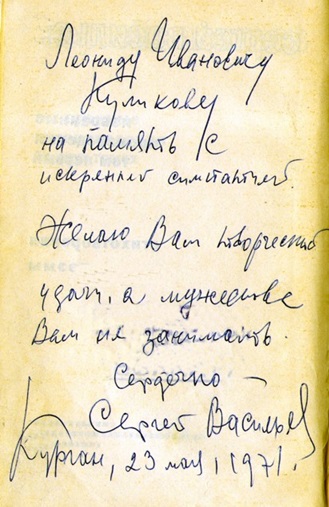 Леониду Ивановичу
Куликову
на память с
искренней симпатией.
Желаю Вам творческих
удач, а мужества
Вам не занимать.
Сердечно –
Сергей Васильев
Курган, 23 мая, 1971.